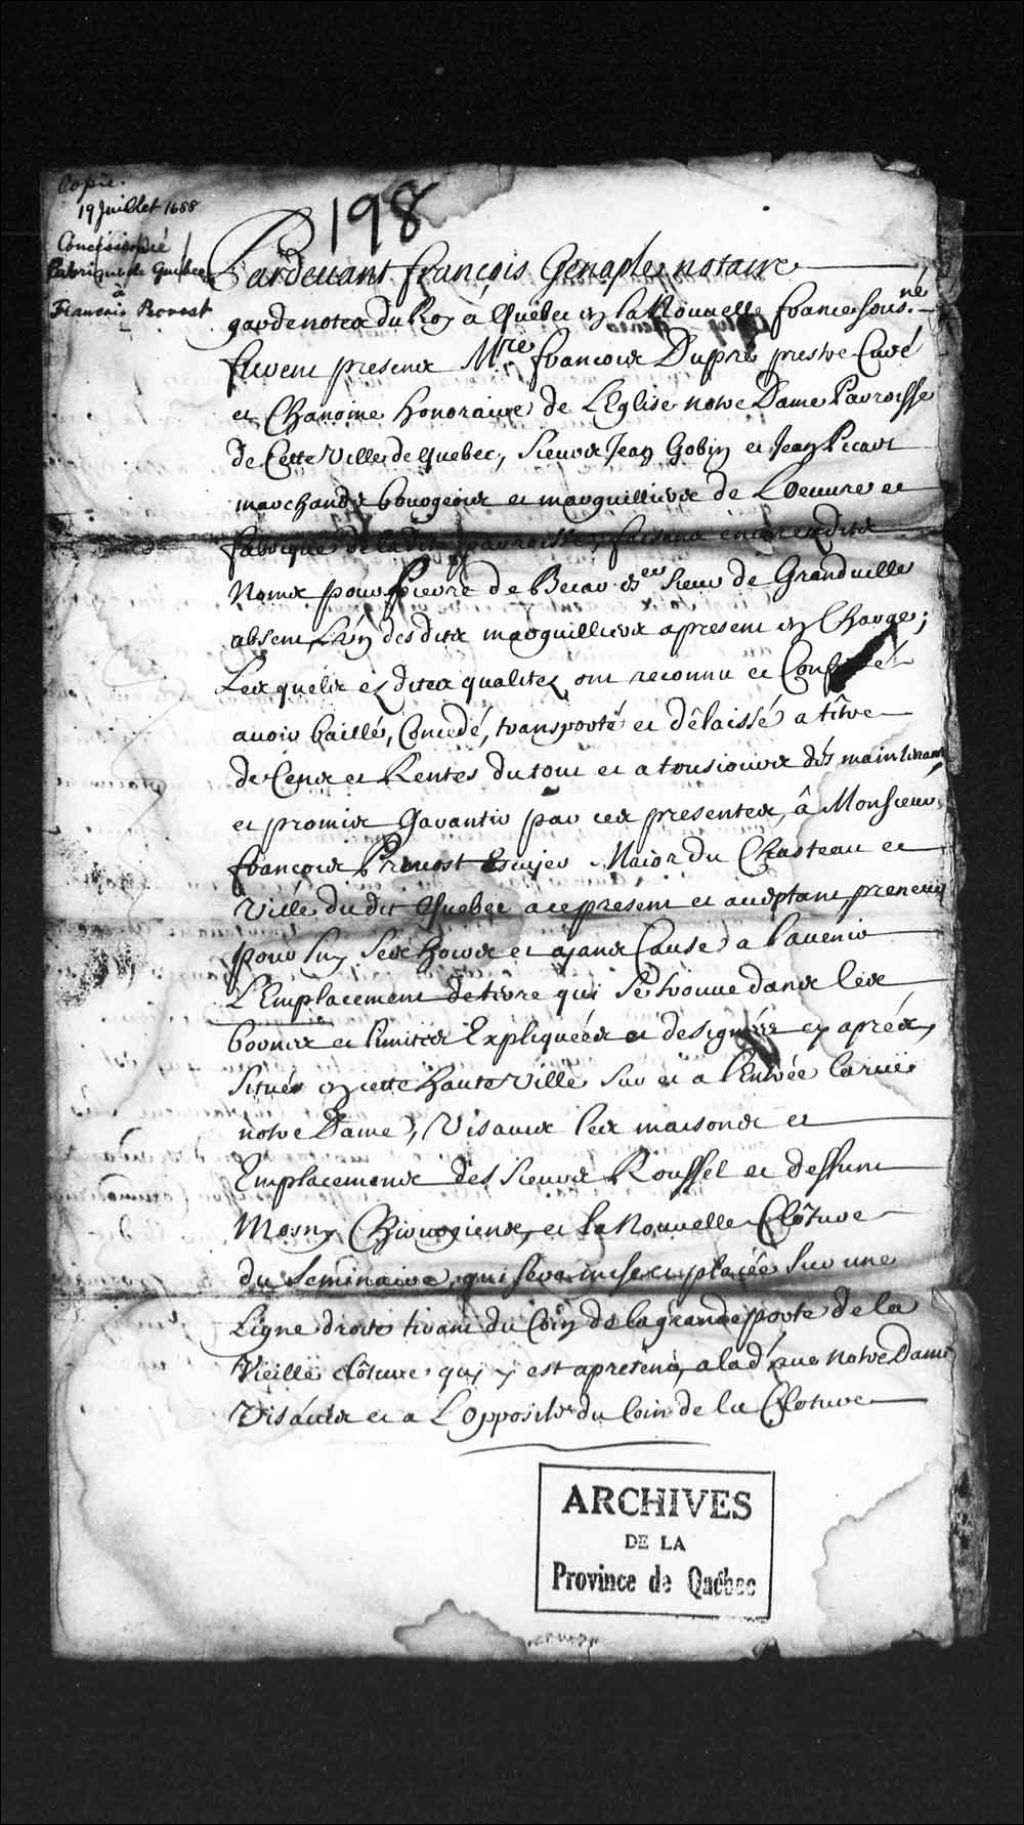 Copie.
19 Juillet 1688
Concession de
Fabrique de Quebec
à
Francois Provost
198
Pardeuant françois Genaple notaire
gardenotes du Roy à Quebec en la Nouuelle france sousné.
furent presens Mre. francois Dupré prestre Curé
et Chanoine honoraire de L'Eglise notre Dame Parroisse
de Cette Ville de Quebec, sieurs Jean Gobin et Jean Picart
marchands bourgeois et marguilliers de L'Oeuure et
fabrique de la dite parroisse, faisans encore esdits
Noms pour Pierre de Becar Escer Sieur de Granduille
absent L'un des dits marguilliers apresent en Charge;
Lesquels es dites qualitez ont reconnu et Confessé
auoir baillé, Concedé, transporté et délaissé a titre
de Cens et Rentes du tout et a tousiours dés maintenant
et promis Garantir par ces presentes, à Monsieur
françois Preuost Escuyer Maior du Chasteau et
Ville du dit Quebec a ce present et acceptant, preneur
pour luy ses hoirs et ayans Cause a l'auenir
L'Emplacement de terre qui se trouue dans les
bornes et limites Expliquées et designées cy aprés,
situés en cette haute Ville sur et a l'Entrée la rüe
notre Dame, Visauis les maisons et
Emplacemens des sieurs Roussel et deffunt
Mosny Chirurgiens, et la Nouuelle Clôture
du Seminaire, qui sera mise et placée sur une
Ligne droite tirant du Coin de la grande porte de la
Vieille clôture qui y est apresent, a lad. rue notre Dame
Visauis et a L'opposite du Coin de la Cloture
ARCHIVES
DE LA
Province de Québec